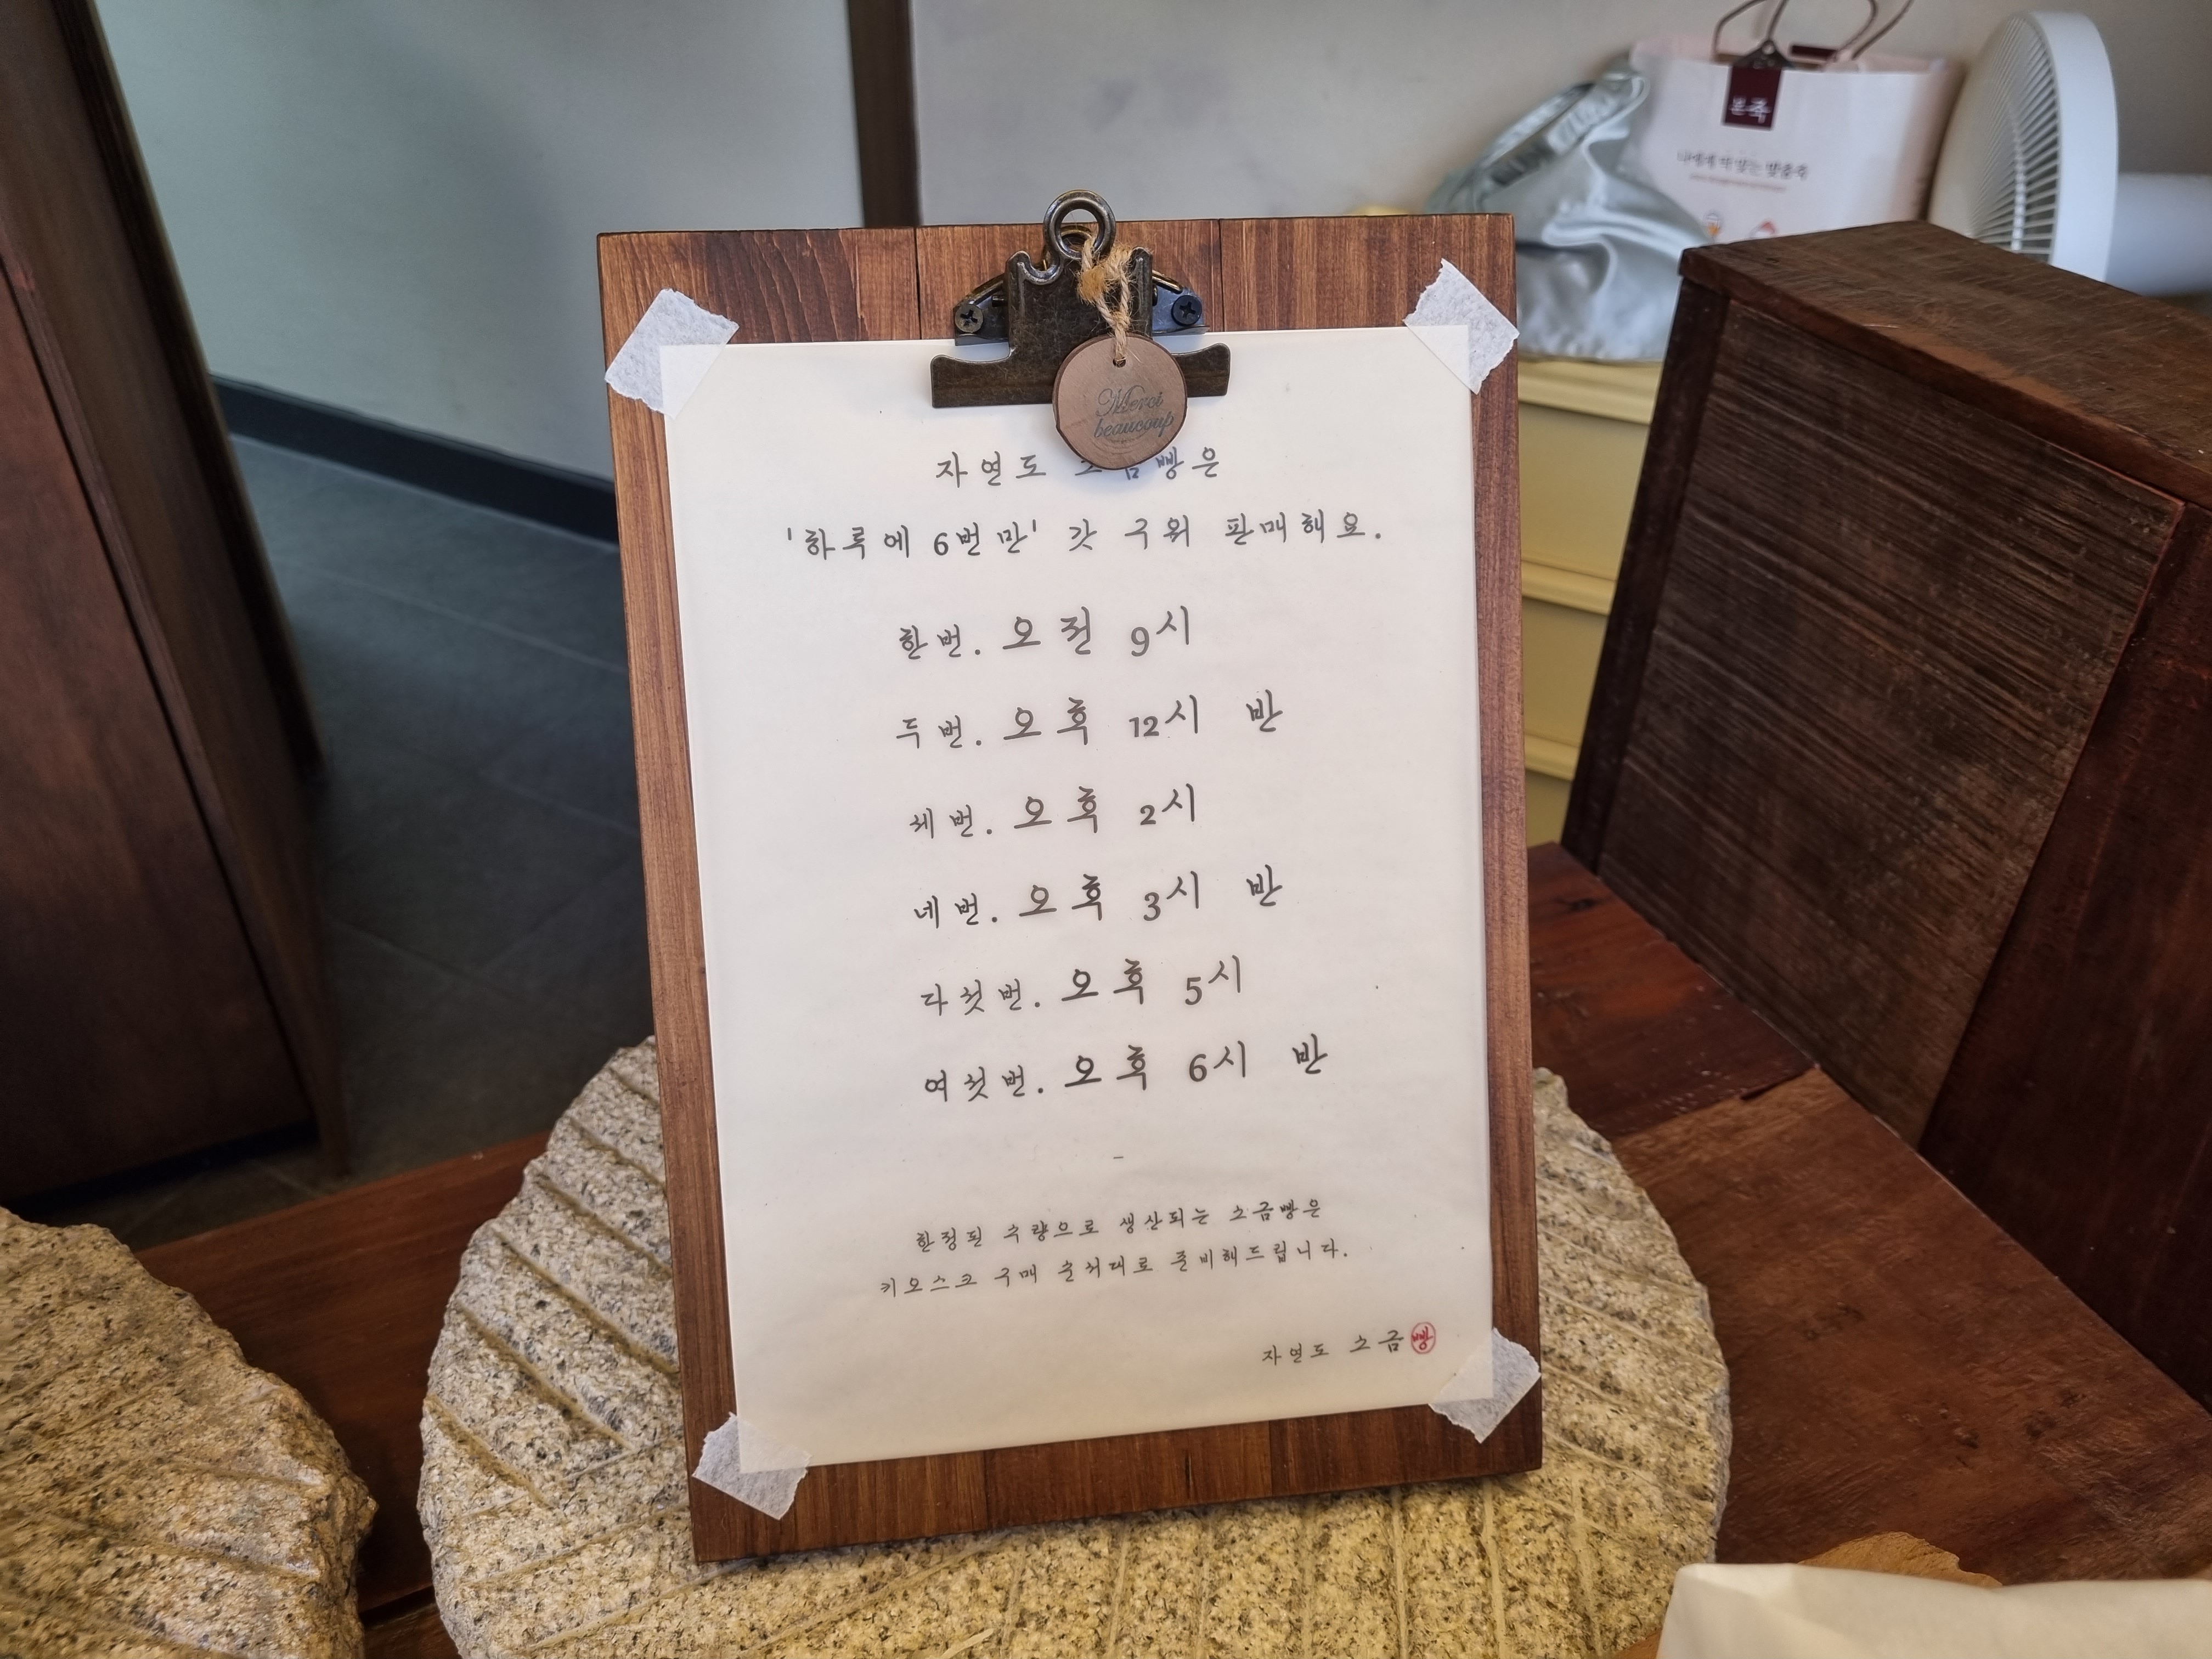 본죽
Merci
beaucoup
자연도 소금빵은
'하루에 6번만' 갓 구워 판매해요.
한번. 오전 9시
두번. 오후 12시 반
세번. 오후 2시
네번. 오후 3시 반
다섯번. 오후 5시
여섯번. 오후 6시 반
한정된 수량으로 생산되는 소금빵은
키오스크 구매 순서대로 준비해드립니다.
자연도 소금빵